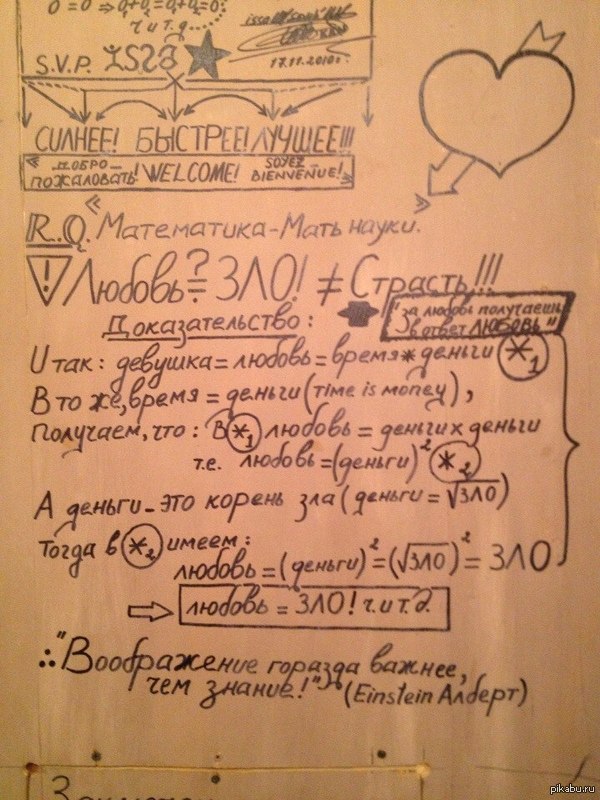 0 = 0 ⇒ 0₁+0₂=0₁+0₂=0;
ч.и т.д.
S.V.P.
17.11.2010г.
СИЛНЕЕ! БЫСТРЕЕ! ЛУЧШЕЕ!!!
" ДОБРО-
ПОЖАЛОВАТЬ! WELCOME! SOYEZ
BIENVENUE! "
R.Q. "Математика-Мать науки. "
! Любовь ?= ЗЛО! ≠ Страсть!!!
Доказательство:
"за любовь получаешь
в ответ ЛЮБОВЬ"
Итак: девушка = любовь = время * деньги *₁
В то же, время = деньги (time is money),
Получаем, что: в *₁ любовь = деньги х деньги
т.е. любовь = (деньги)² *₂
А деньги - это корень зла (деньги = √ЗЛО)
Тогда в *₂ имеем:
любовь = (деньги)² = (√ЗЛО)² = ЗЛО
⇒ любовь = ЗЛО! ч.и т.д.
∴ "Воображение горазда важнее,
чем знание!"
(Einstein Алберт)
pikabu.ru